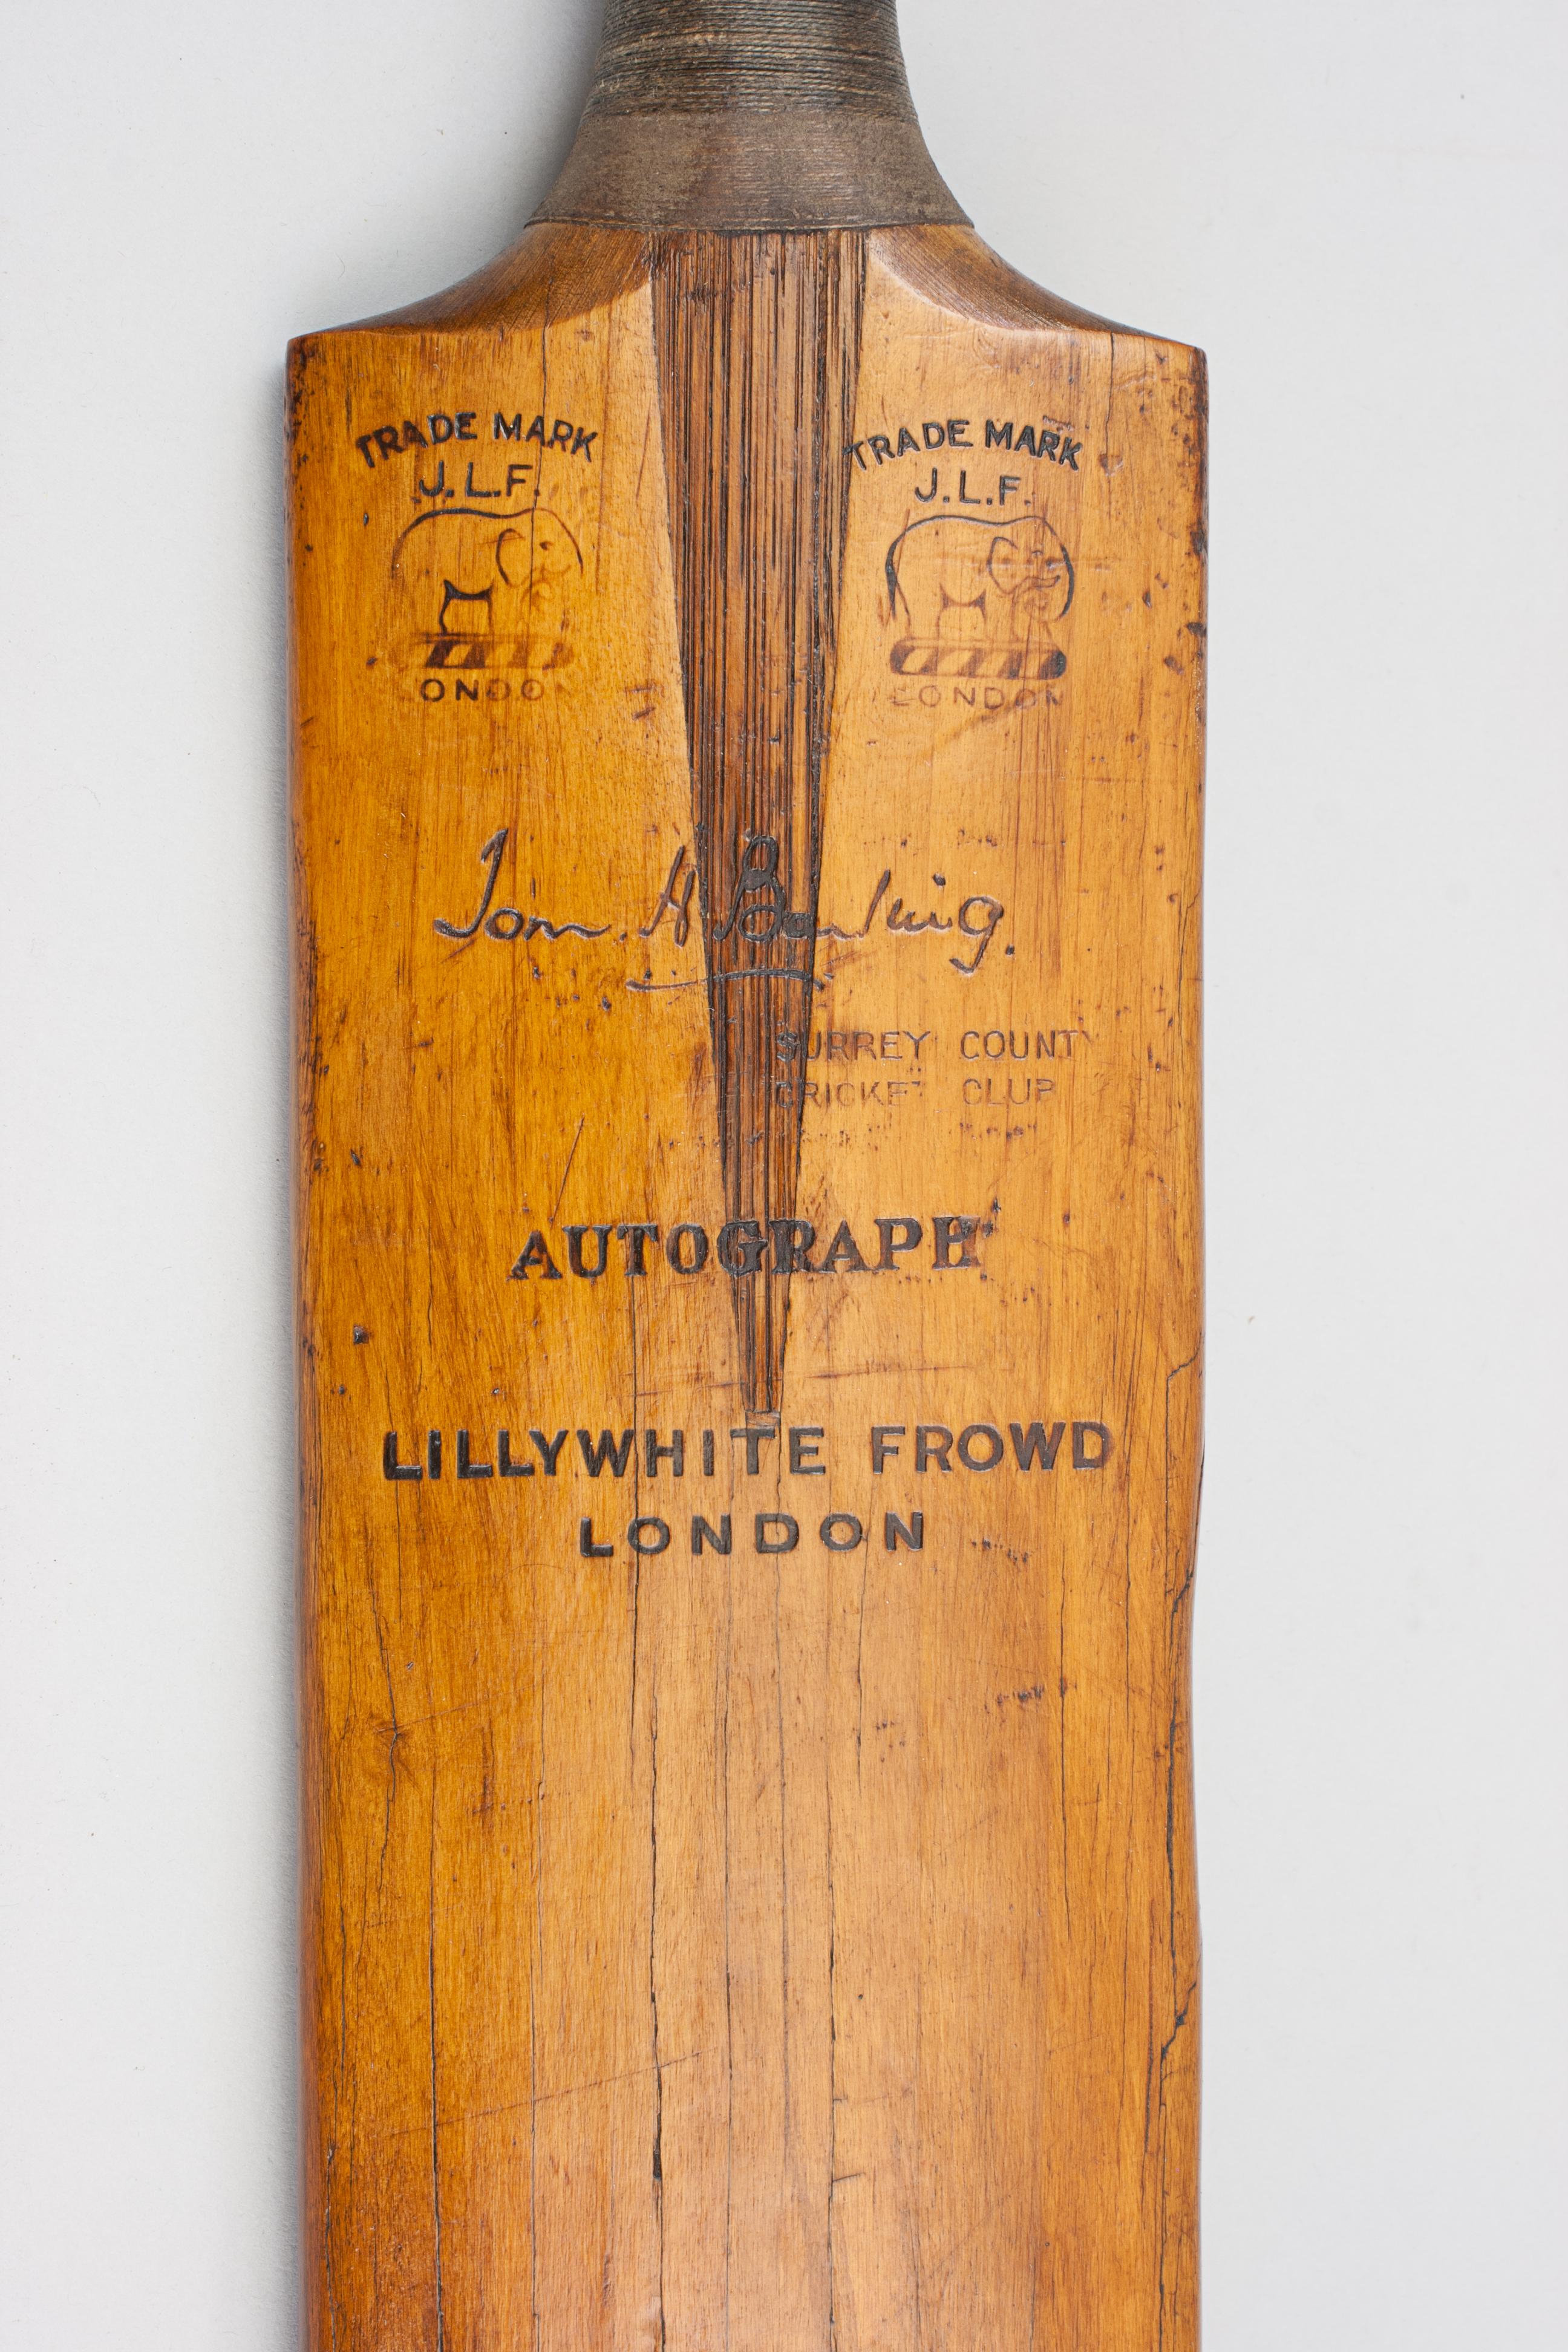 TRADE MARK
J.L.F.
ONDO
TRADE MARK
J.L.F.
LONDON
Tom. H Barling.
SURREY COUNTY
CRICKET CLUB
AUTOGRAPH
LILLYWHITE FROWD
LONDON